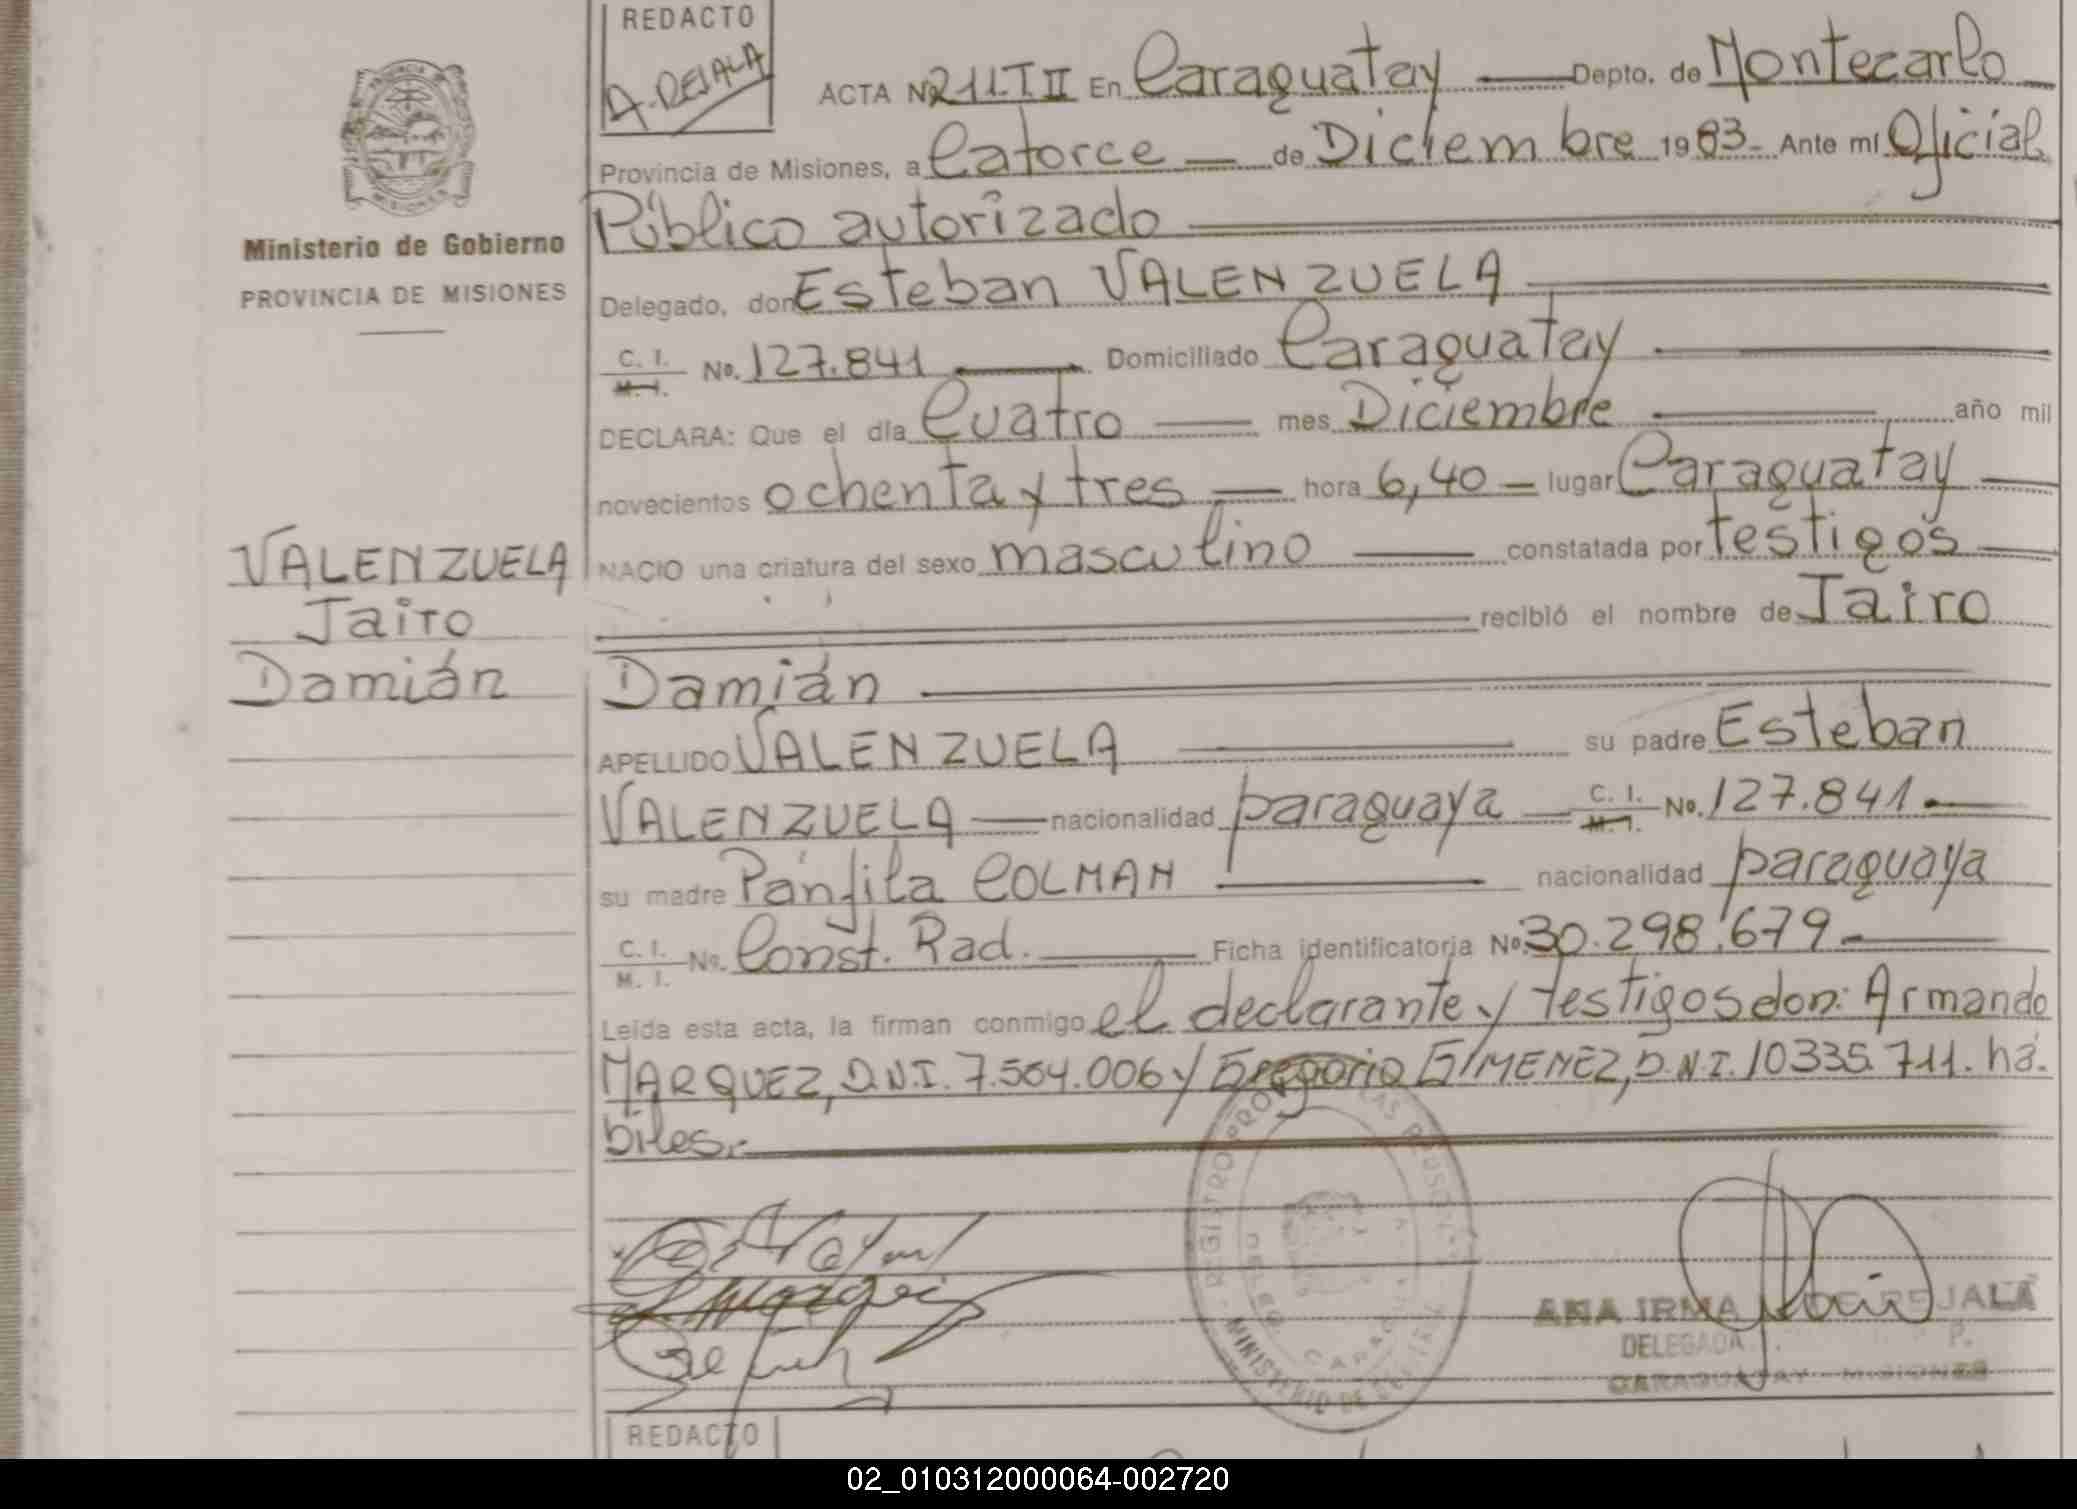 REDACTO
A. REJALA
PROVINCIA DE MISIONES
Ministerio de Gobierno
PROVINCIA DE MISIONES
VALENZUELA
Jairo
Damián
ACTA Nº 211.T II En Caraguatay Depto. de Montecarlo
Provincia de Misiones, a Catorce de Diciembre 1983.- Ante mí Oficial
Público autorizado
Delegado, don Esteban VALENZUELA
C. I. M. I. No. 127.841 Domiciliado Caraguatay
DECLARA: Que el día Cuatro mes Diciembre año mil
novecientos ochenta y tres hora 6,40 lugar Caraguatay
NACIO una criatura del sexo masculino constatada por testigos
recibió el nombre de Jairo
Damián
APELLIDO VALENZUELA su padre Esteban
VALENZUELA nacionalidad paraguaya C. I. M. I. No. 127.841.-
su madre Pánfila COLMAN nacionalidad paraguaya
C. I. M. I. No. Const. Rad. Ficha identificatoria No. 30.298.679.-
Leída esta acta, la firman conmigo el declarante y testigos don: Armando
MARQUEZ, D.N.I. 7.564.006 y Gregorio GIMENEZ, D.N.I. 10335.711. há-
biles.-
REGISTRO PROV DE LAS PERSONAS
MINISTERIO DE
ANA IRMA DE REJALA
DELEGADA
CARAGUATAY - MISIONES
REDACTO
02_010312000064-002720